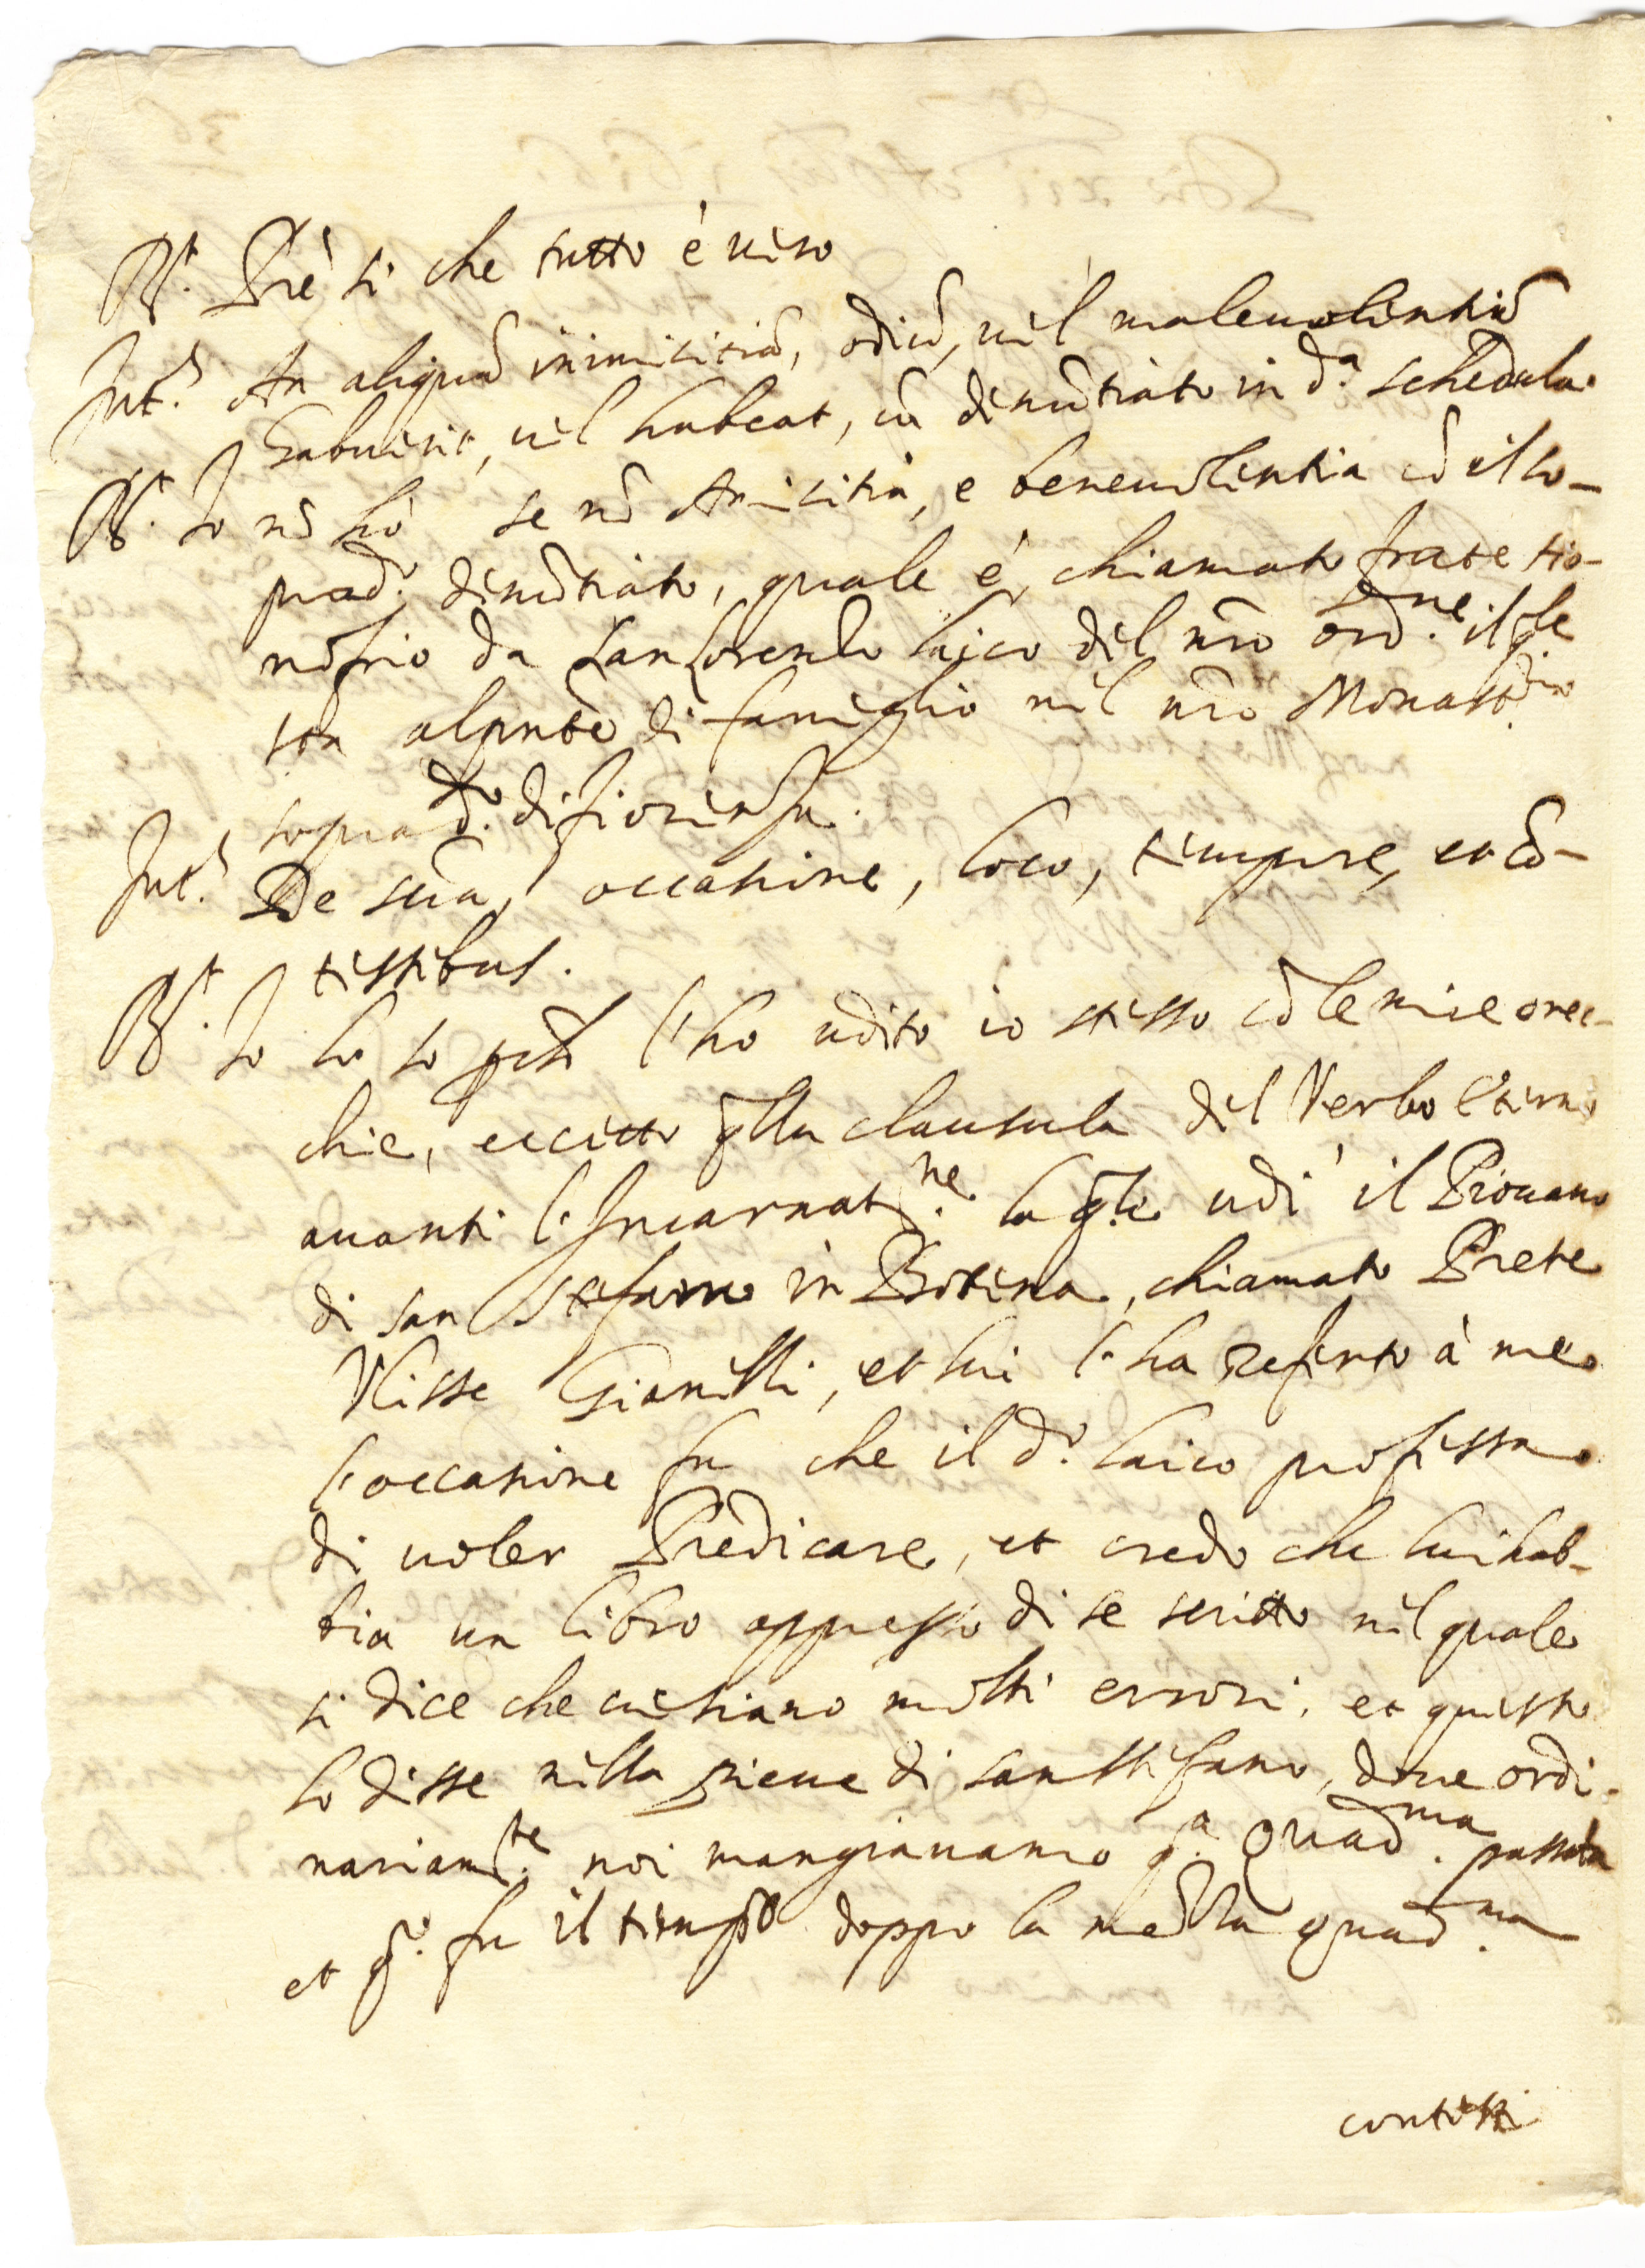 R.t Prē si che tutto è vero
Int.s An aliquā inimicitiā, odiū, vel malevolentiā
habuerit, vel habeat, cū denūtiato in d.a schedula
R.t Io nō hò se nō Amicitia, e benevolentia cō il so-
prad.o denūtiato, quale è chiamato frate Ho-
nofrio da san Lorenzo laico del nrō ord.ne il qle
sta alpnte di famiglia nel nrō Monast.rio
soprad.to di fiorenza.
Int.s De scīa, occasione, loco, tempore, et cō-
testibus.
R.t Io lo so pchē l'ho udito io stesso cō le mie orec-
chie, eccetto qlla clausula del Verbo Eterno
avanti l'Incarnat.ne la qle udì il Piovano
di san Stefano in Botena, chiamato Prete
Ulisse Gianelli, et lui l'ha referto à me
l'occasione fu che il d.o laico professa
di voler Predicare, et credo che lui hab-
bia un libro appresso di se scritto nel quale
si dice che vi siano molti errori, et questo
lo disse nella pieve di santo stefano, dove ordi-
nariam.te noi mangiavamo q.a Quad.ma passata
et q.o fu il tempo doppo la mezza quad.ma
contesti